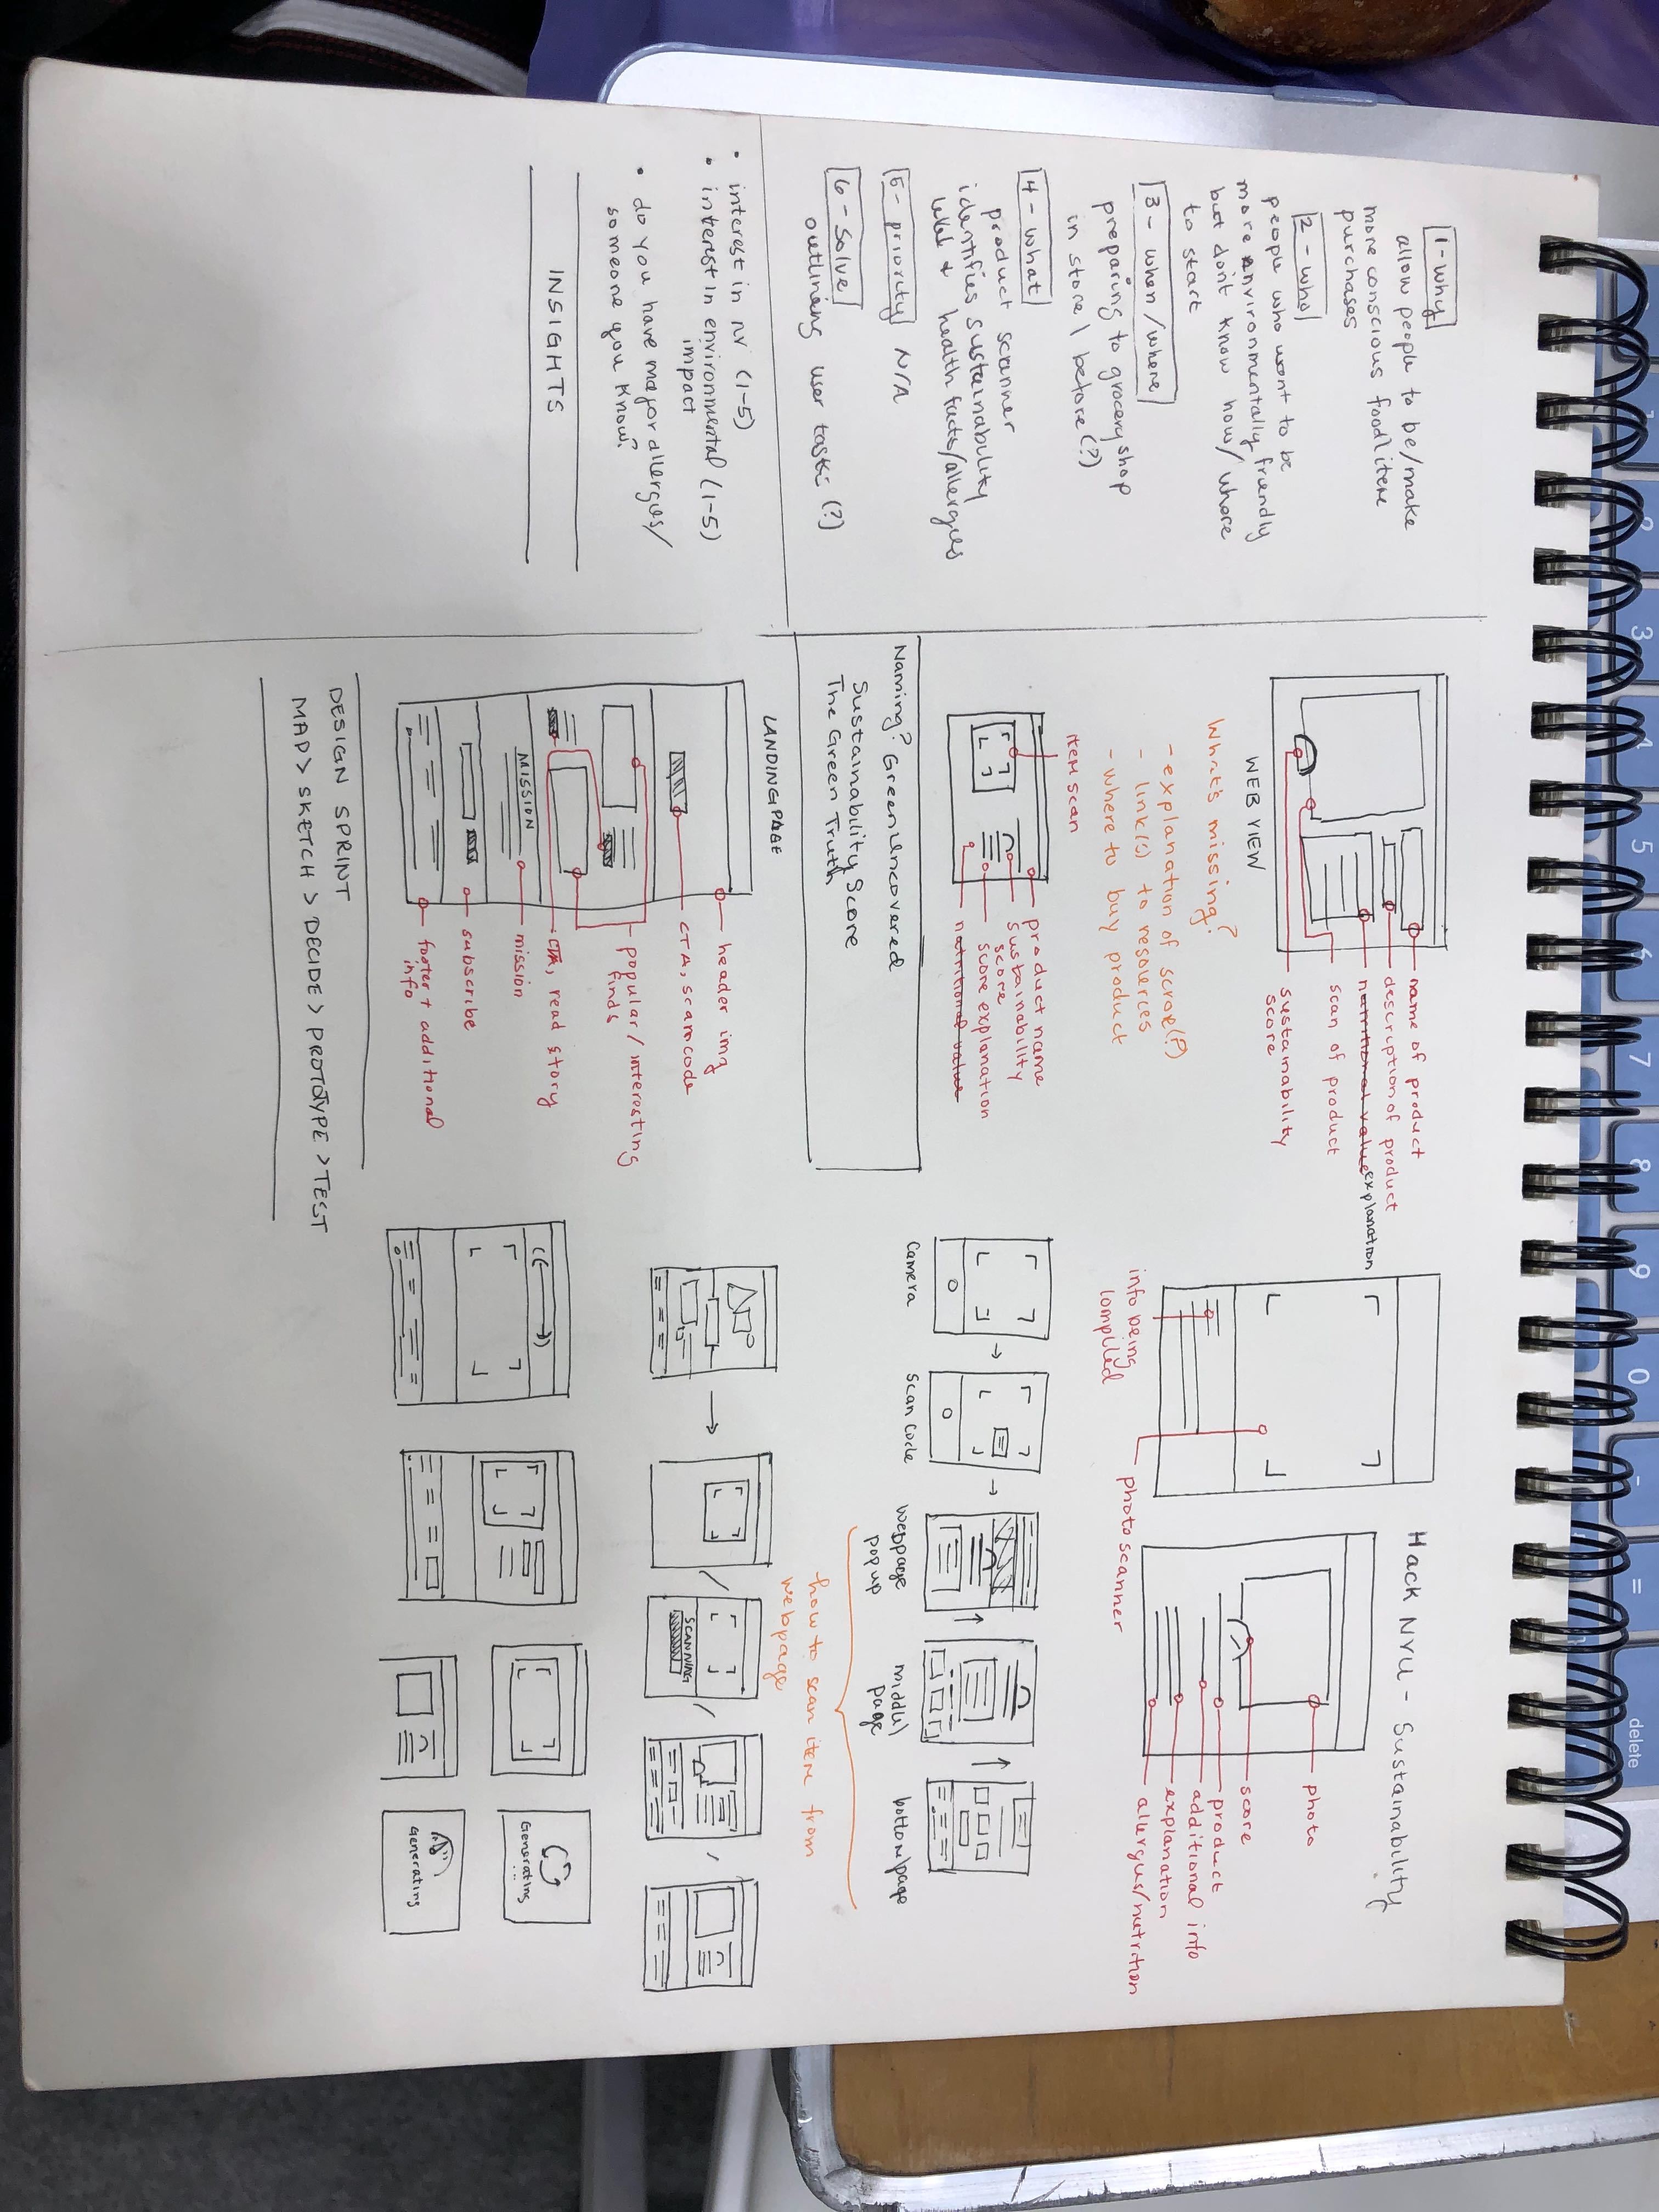 Hack NYU - Sustainability
1 - why
allow people to be/make
more conscious food/item
purchases
2 - who
people who want to be
more environmentally friendly
but don't know how/where
to start
3 - when/where
preparing to grocery shop
in store / before (?)
4 - what
product scanner
identifies sustainability
level + health facts/allergies
5 - priority N/A
6 - solve
outlining user tasks (?)
• interest in NV (1-5)
• interest in environmental (1-5)
impact
• do you have major allergies/
someone you know?
INSIGHTS
name of product
description of product
nutritional value explanation
scan of product
sustainability
score
WEB VIEW
What's missing?
- explanation of score(?)
- link(s) to resources
- where to buy product
item scan
product name
sustainability
score
score explanation
nutritional value
Naming? GreenUncovered
Sustainability Score
The Green Truth
LANDING PAGE
header img
CTA, scan code
popular/interesting
finds
CTA, read story
MISSION
mission
subscribe
footer + additional
info
DESIGN SPRINT
MAP > SKETCH > DECIDE > PROTOTYPE > TEST
info being
compiled
photo scanner
photo
score
product
additional info
explanation
alergies/nutrition
camera
scan code
webpage
popup
middle/
page
bottom/page
how to scan item from
webpage
SCANNING
Generating
Generating
1
2
3
4
5
6
7
8
9
0
-
=
delete